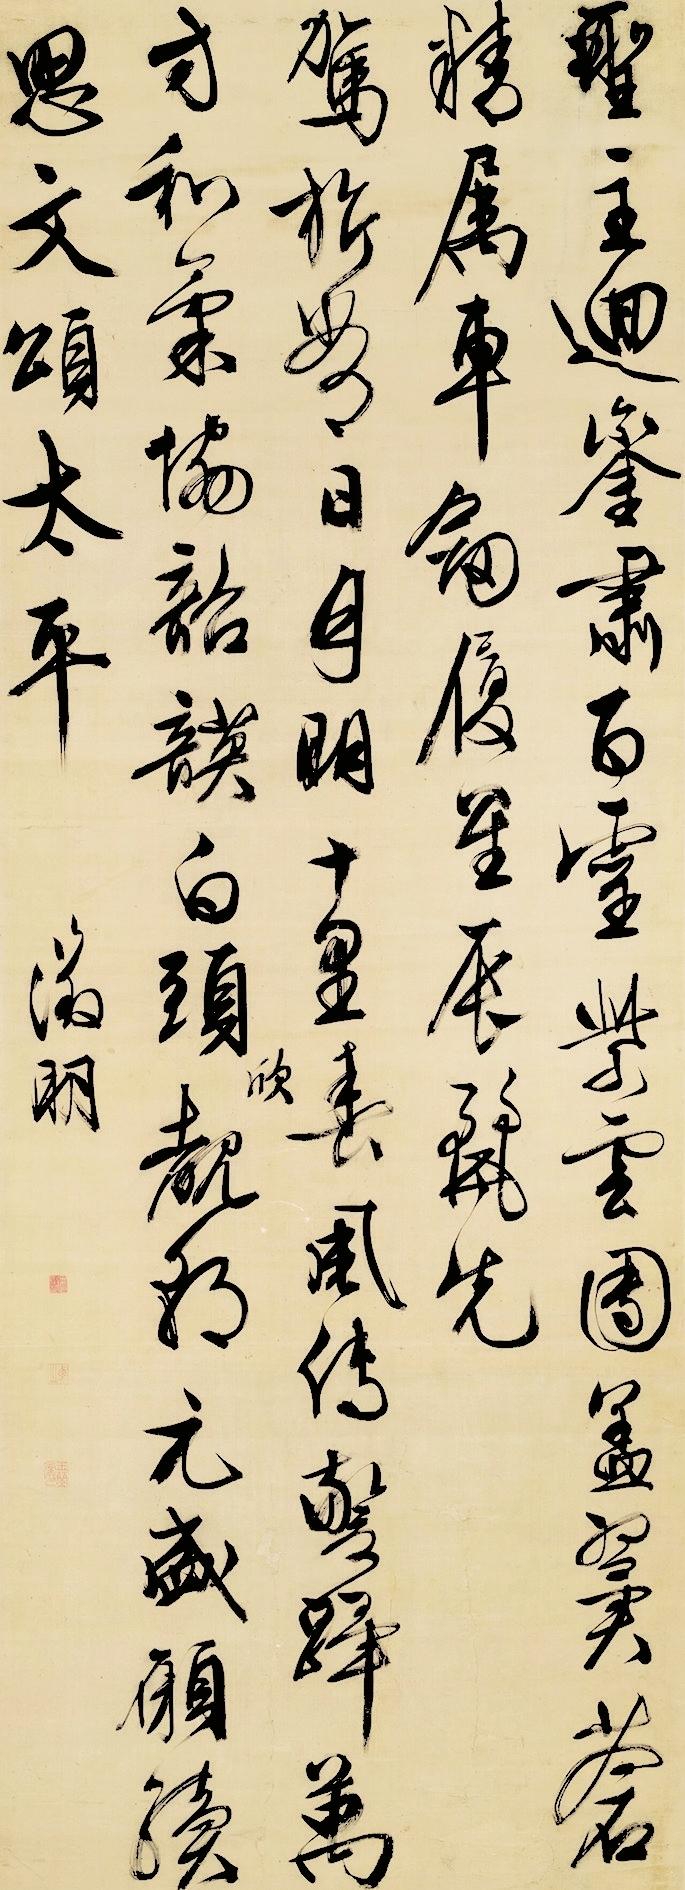 聖主迴鑾肅百靈紫雲團蓋翼蒼
精屬車劍履星辰麗先
駕旂常日月明十里春風傳警蹕萬
方和氣協韶韺白頭欣覩朝元盛願續
思文頌太平
徵明